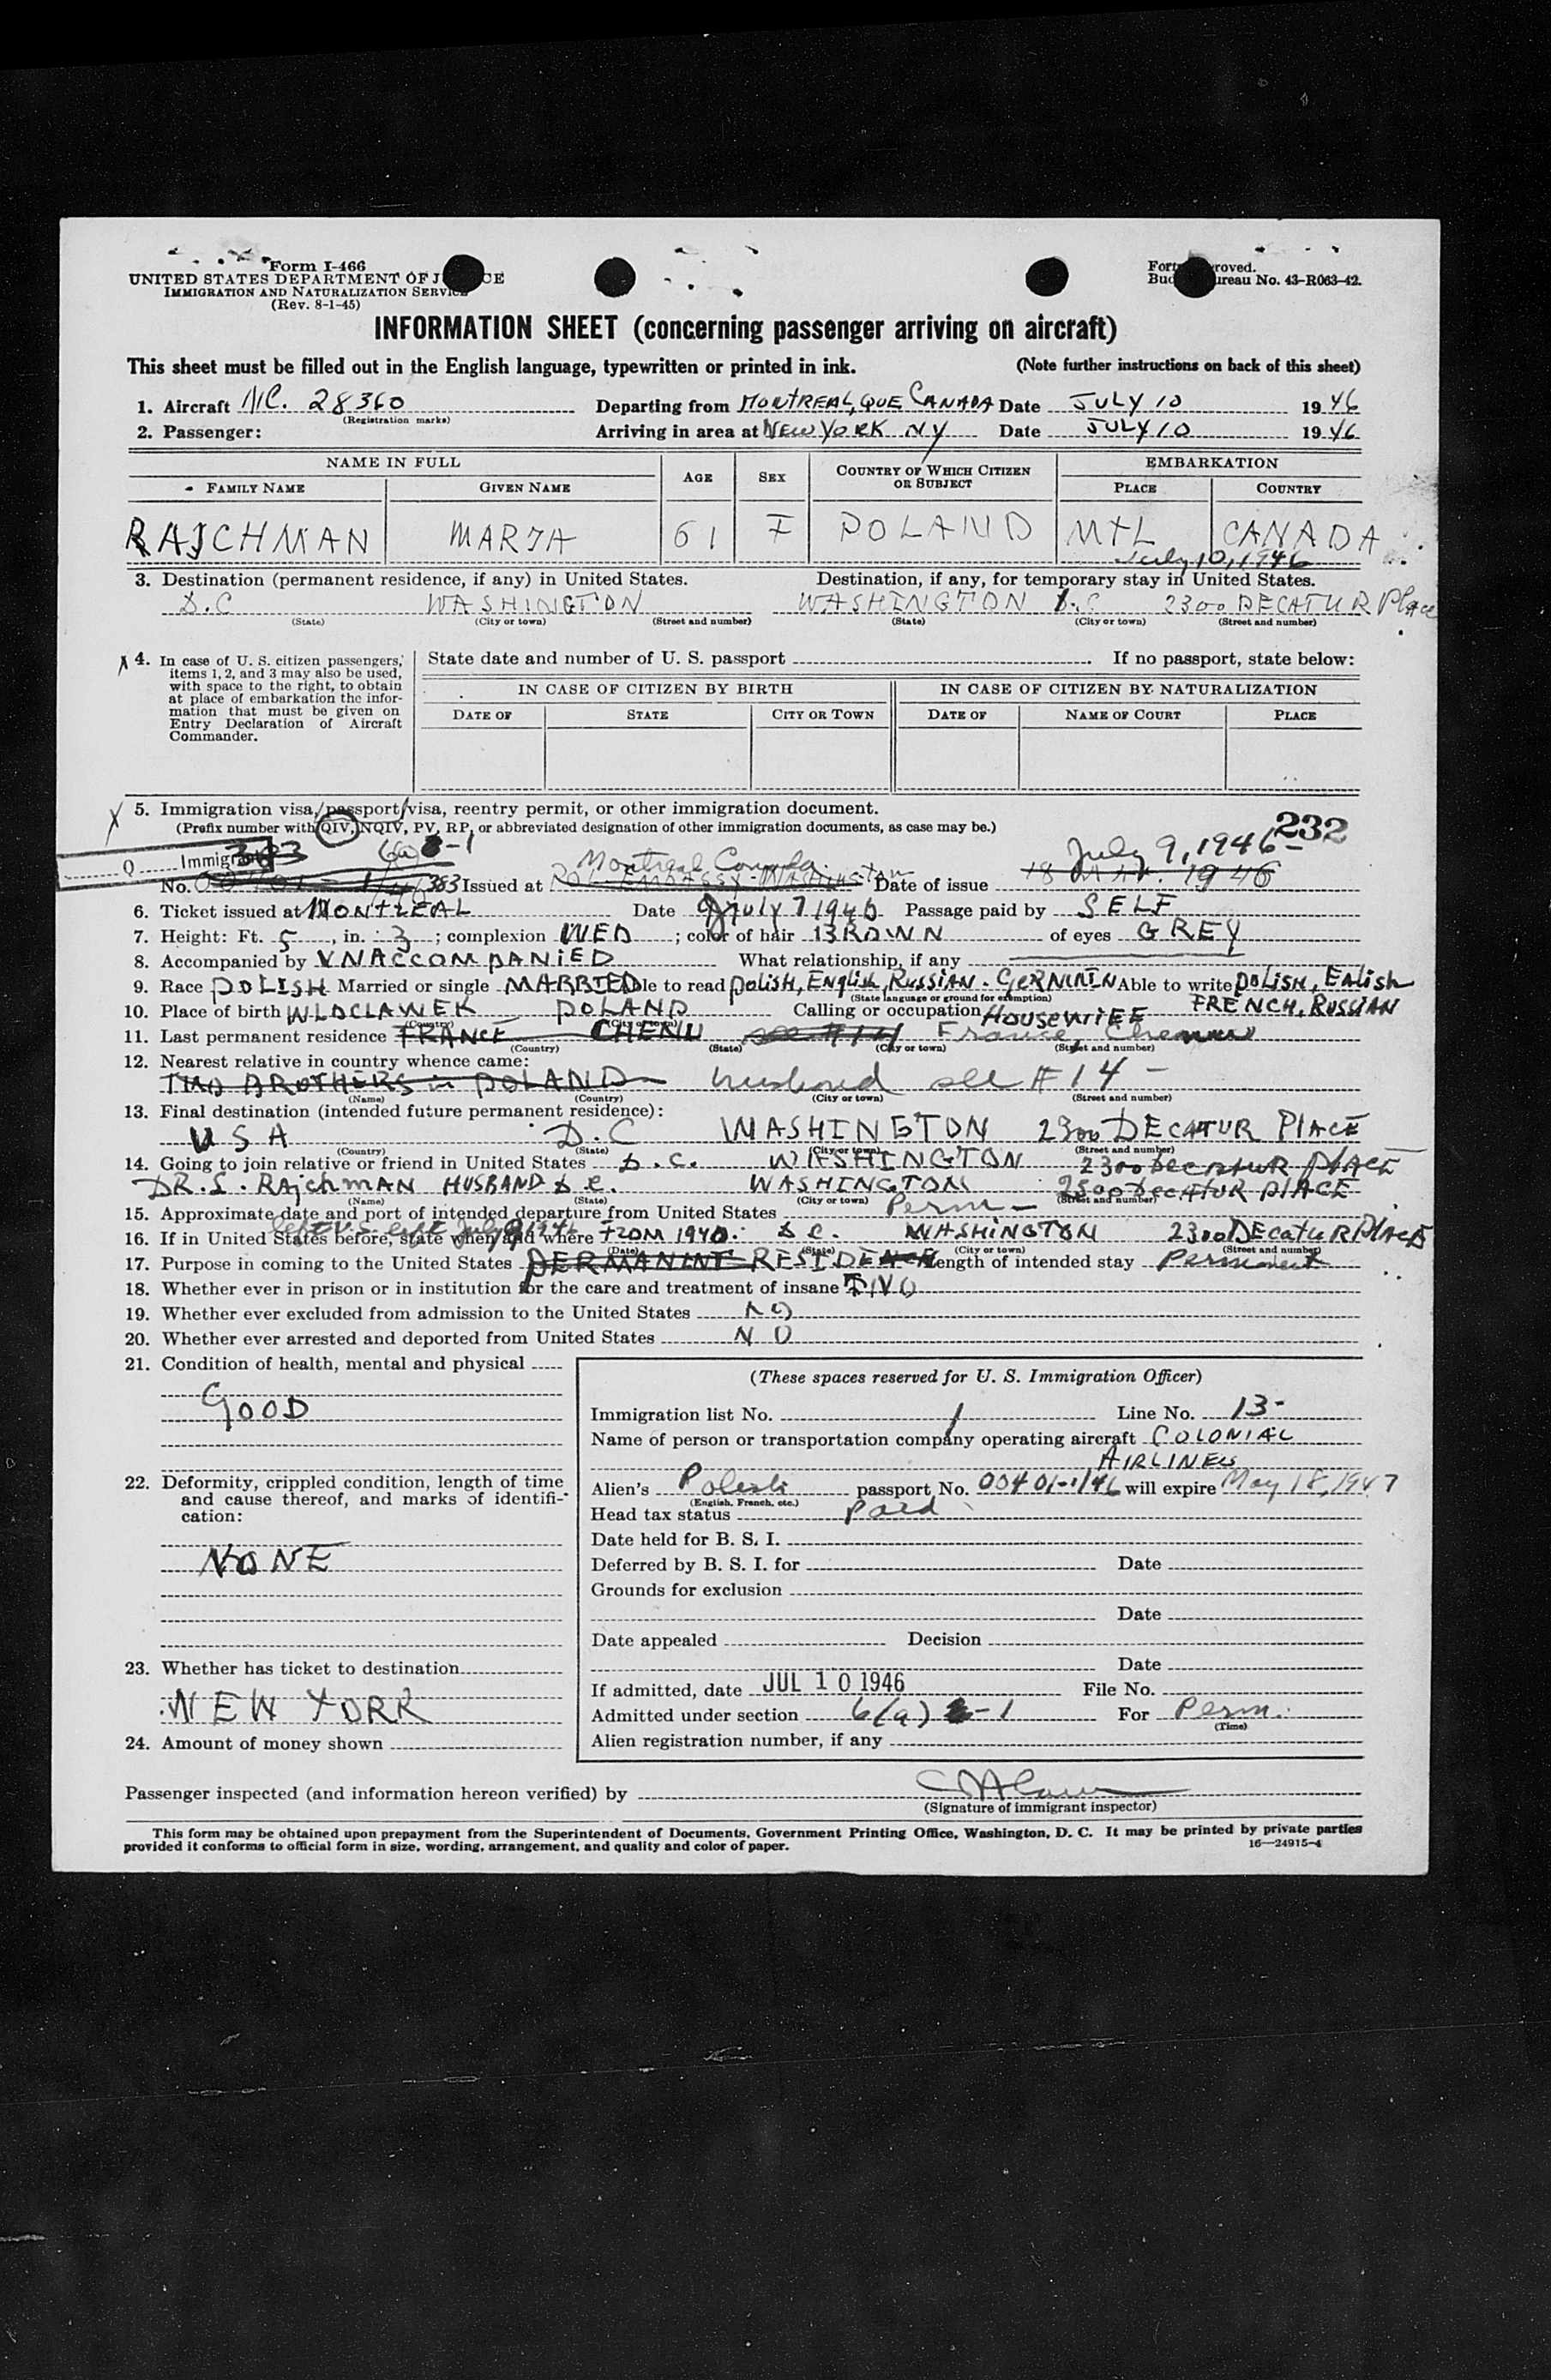 Form I-466
UNITED STATES DEPARTMENT OF J CE
IMMIGRATION AND NATURALIZATION SERVICE
(Rev. 8-1-45)
Form roved.
Bud ureau No. 43-R063-42.
INFORMATION SHEET (concerning passenger arriving on aircraft)
This sheet must be filled out in the English language, typewritten or printed in ink. (Note further instructions on back of this sheet)
1. Aircraft NC. 28360 Departing from MONTREAL, QUE CANADA Date JULY 10 1946
(Registration marks)
2. Passenger: Arriving in area at NEW YORK NY Date JULY 10 1946
NAME IN FULL AGE SEX COUNTRY OF WHICH CITIZEN OR SUBJECT EMBARKATION
FAMILY NAME GIVEN NAME PLACE COUNTRY
RAJCHMAN MARJA 61 F POLAND MTL CANADA
July 10, 1946
3. Destination (permanent residence, if any) in United States. Destination, if any, for temporary stay in United States.
D.C WASHINGTON WASHINGTON D.C 2300 DECATUR Place
(State) (City or town) (Street and number) (State) (City or town) (Street and number)
X 4. In case of U. S. citizen passengers,
items 1, 2, and 3 may also be used,
with space to the right, to obtain
at place of embarkation the infor-
mation that must be given on
Entry Declaration of Aircraft
Commander.
State date and number of U. S. passport If no passport, state below:
IN CASE OF CITIZEN BY BIRTH IN CASE OF CITIZEN BY NATURALIZATION
DATE OF STATE CITY OR TOWN DATE OF NAME OF COURT PLACE
X 5. Immigration visa, passport visa, reentry permit, or other immigration document.
(Prefix number with QIV, NQIV, PV, RP, or abbreviated designation of other immigration documents, as case may be.)
232
Q Immigrant 383 Montreal Canada July 9, 1946
No. 383 Issued at Date of issue 18 1946
6. Ticket issued at MONTREAL Date July 1946 Passage paid by SELF
7. Height: Ft. 5, in. 3; complexion MED; color of hair BROWN of eyes GREY
8. Accompanied by UNACCOMPANIED What relationship, if any
9. Race POLISH Married or single MARRIED Able to read Polish, English, Russian. GERMAN Able to write POLISH, ENLISH
(State language or ground for exemption) FRENCH, RUSSIAN
10. Place of birth WLOCLAWEK POLAND Calling or occupation HOUSEWIEE
(Country) (City or town)
11. Last permanent residence FRANCE CHENU see #14 France, Chenu
(Country) (State) (City or town) (Street and number)
12. Nearest relative in country whence came:
TWO BROTHERS in POLAND husband see #14 -
(Name) (Country) (City or town) (Street and number)
13. Final destination (intended future permanent residence):
USA D.C WASHINGTON 2300 DECATUR PlACE
(Country) (State) (City or town) (Street and number)
14. Going to join relative or friend in United States D.C. WASHINGTON 2300 DECATUR PLACE
DR. L. RAjchMAN HUSBAND D.C. WASHINGTON 2300 DECATUR PlACE
(Name) (State) (City or town) (Street and number)
15. Approximate date and port of intended departure from United States Perm -
left U.S. July 9 1946
16. If in United States before, state when and where FROM 1940. D.C. WASHINGTON 2300 DEcatUR PlAcE
(Date) (State) (City or town) (Street and number)
17. Purpose in coming to the United States PERMANINT RESIDENCE Length of intended stay Permanent
18. Whether ever in prison or in institution for the care and treatment of insane NO
19. Whether ever excluded from admission to the United States NO
20. Whether ever arrested and deported from United States NO
21. Condition of health, mental and physical
GOOD
22. Deformity, crippled condition, length of time
and cause thereof, and marks of identifi-
cation:
NONE
23. Whether has ticket to destination
NEW YORK
24. Amount of money shown
(These spaces reserved for U. S. Immigration Officer)
Immigration list No. 1 Line No. 13-
Name of person or transportation company operating aircraft COLONIAL
AIRLINES
Alien's Polish passport No. 00401-1/46 will expire May 18, 1947
(English, French, etc.)
Head tax status Paid
Date held for B. S. I.
Deferred by B. S. I. for Date
Grounds for exclusion
Date
Date appealed Decision
Date
If admitted, date JUL 10 1946 File No.
Admitted under section 6(a) 3-1 For Perm.
(Time)
Alien registration number, if any
Passenger inspected (and information hereon verified) by
(Signature of immigrant inspector)
This form may be obtained upon prepayment from the Superintendent of Documents, Government Printing Office, Washington, D. C. It may be printed by private parties
provided it conforms to official form in size, wording, arrangement, and quality and color of paper. 16—24915-4